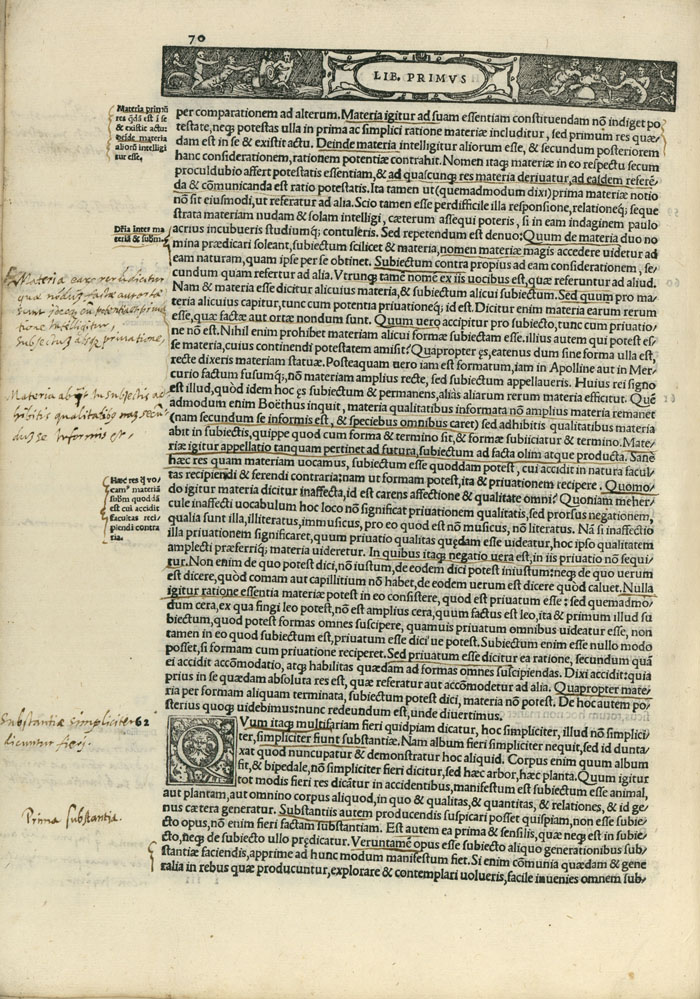 70
LIB. PRIMVS
Materia primũ
res q̃dã est ĩ se
& existĩe actu:
deĩde materia
aliorũ intelligi
tur esse.
per comparationem ad alterum. Materia igitur ad suam essentiam constituendam nõ indiget po
testate, neq; potestas ulla in prima ac simplici ratione materiæ includitur, sed primum res quæ/
dam est in se & existit actu. Deinde materia intelligitur aliorum esse, & secundum posteriorem
hanc considerationem, rationem potentiæ contrahit. Nomen itaq; materiæ in eo respectu secum
proculdubio affert potestatis essentiam, & ad quascunq; res materia deriuatur, ad easdem referẽ/
da & cõmunicanda est ratio potestatis. Ita tamen ut (quemadmodum dixi) prima materiæ notio
nõ sit eiusmodi, ut referatur ad alia. Scio tamen esse perdifficile illa responsione, relationeq; seque
strata materiam nudam & solam intelligi, cæterum assequi poteris, si in eam indaginem paulo
Dr̃ia inter ma
teriã & subm̃.
acrius incubueris studiumq; contuleris. Sed repetendum est denuo: Quum de materia duo no
mina prædicari soleant, subiectum scilicet & materia, nomen materiæ magis accedere uidetur ad
eam naturam, quam ipse per se obtinet. Subiectum contra propius ad eam considerationem, se/
cundum quam refertur ad alia. Vtrunq; tamẽ nomẽ ex iis uocibus est, quæ referuntur ad aliud.
Nam & materia esse dicitur alicuius materia, & subiectum alicui subiectum. Sed quum pro ma/
teria alicuius capitur, tunc cum potentia priuationeq; id est. Dicitur enim materia earum rerum
esse, quæ factæ aut ortæ nondum sunt. Quum uero accipitur pro subiecto, tunc cum priuatio/
ne nõ est. Nihil enim prohibet materiam alicui formæ subiectam esse. illius autem qui potest es/
se materia, cuius continendi potestatem amisit? Quapropter ęs, eatenus dum sine forma ulla est,
recte dixeris materiam statuæ. Posteaquam uero iam est formatum, iam in Apolline aut in Mer/
curio factum fusumq;, nõ materiam amplius recte, sed subiectum appellaueris. Huius rei signo
est illud, quòd idem hoc ęs subiectum & permanens, aliàs aliarum rerum materia efficitur. Quẽ
admodum enim Boëthus inquit, materia qualitatibus informata nõ amplius materia remanet
(nam secundum se informis est, & speciebus omnibus caret) sed adhibitis qualitatibus materia
abit in subiectis, quippe quod cum forma & termino sit, & formæ subiiciatur & termino. Mate/
riæ igitur appellatio tanquam pertinet ad futura, subiectum ad facta olim atque producta. Sanè
hæc res quam materiam uocamus, subiectum esse quoddam potest, cui accidit in natura facul/
tas recipiendi & ferendi contraria: nam ut formam potest, ita & priuationem recipere. Quomo/
do igitur materia dicitur inaffecta, id est carens affectione & qualitate omni? Quoniam meher/
cule inaffecti uocabulum hoc loco nõ significat priuationem qualitatis, sed prorsus negationem,
qualia sunt illa, illiteratus, immusicus, pro eo quod est nõ musicus, nõ literatus. Nã si inaffectio
illa priuationem significaret, quum priuatio qualitas quędam esse uideatur, hoc ipso qualitatem
amplecti præferriq; materia uideretur. In quibus itaq; negatio uera est, in iis priuatio nõ sequi/
tur. Non enim de quo potest dici, nõ iustum, de eodem dici potest iniustum: neq; de quo uerum
est dicere, quòd comam aut capillitium nõ habet, de eodem uerum est dicere quòd caluet. Nulla
igitur ratione essentia materiæ potest in eo consistere, quod est priuatum esse: sed quemadmo/
dum cera, ex qua fingi leo potest, nõ est amplius cera, quum factus est leo, ita & primum illud su
biectum, quod potest formas omnes suscipere, quamuis priuatum omnibus uideatur esse, non
tamen in eo quod subiectum est, priuatum esse dici ue potest. Subiectum enim esse nullo modo
posset, si formam cum priuatione reciperet. Sed priuatum esse dicitur ea ratione, secundum quã
ei accidit accõmodatio, atq; habilitas quædam ad formas omnes suscipiendas. Dixi accidit: quia
prius in se quædam absoluta res est, quæ referatur aut accõmodetur ad alia. Quapropter mate/
ria per formam aliquam terminata, subiectum potest dici, materia nõ potest. De hoc autem po/
sterius quoq; uidebimus: nunc redeundum est, unde diuertimus.
Materia
Subiectum absq; priuatione,
Hæc res q̃ vo/
camꝰ materiã
subm̃ quod dã
est cui accidit
facultas reci/
piendi contra
ria.
Substantiæ simpliciter 62
dicuntur fieri.
QVum itaq; multifariam fieri quidpiam dicatur, hoc simpliciter, illud nõ simplici/
ter, simpliciter fiunt substantiæ. Nam album fieri simpliciter nequit, sed id dunta/
xat quod nuncupatur & demonstratur hoc aliquid. Corpus enim quum album
fit, & bipedale, nõ simpliciter fieri dicitur, sed hæc arbor, hæc planta. Quum igitur
tot modis fieri res dicãtur in accidentibus, manifestum est subiectum esse animal,
aut plantam, aut omnino corpus aliquod, in quo & qualitas, & quantitas, & relationes, & id ge/
nus cætera generatur. Substantiis autem producendis suspicari posset quispiam, non esse subie/
cto opus, nõ enim fieri factam substantiam. Est autem ea prima & sensilis, quæ neq; est in subie/
cto, neq; de subiecto ullo prędicatur. Veruntamẽ opus esse subiecto aliquo generationibus sub/
stantiæ faciendis, apprime ad hunc modum manifestum fiet. Si enim cõmunia quædam & gene
ralia in rebus quæ producuntur, explorare & contemplari uolueris, facile inuenies omnem sub/
Prima substantia.